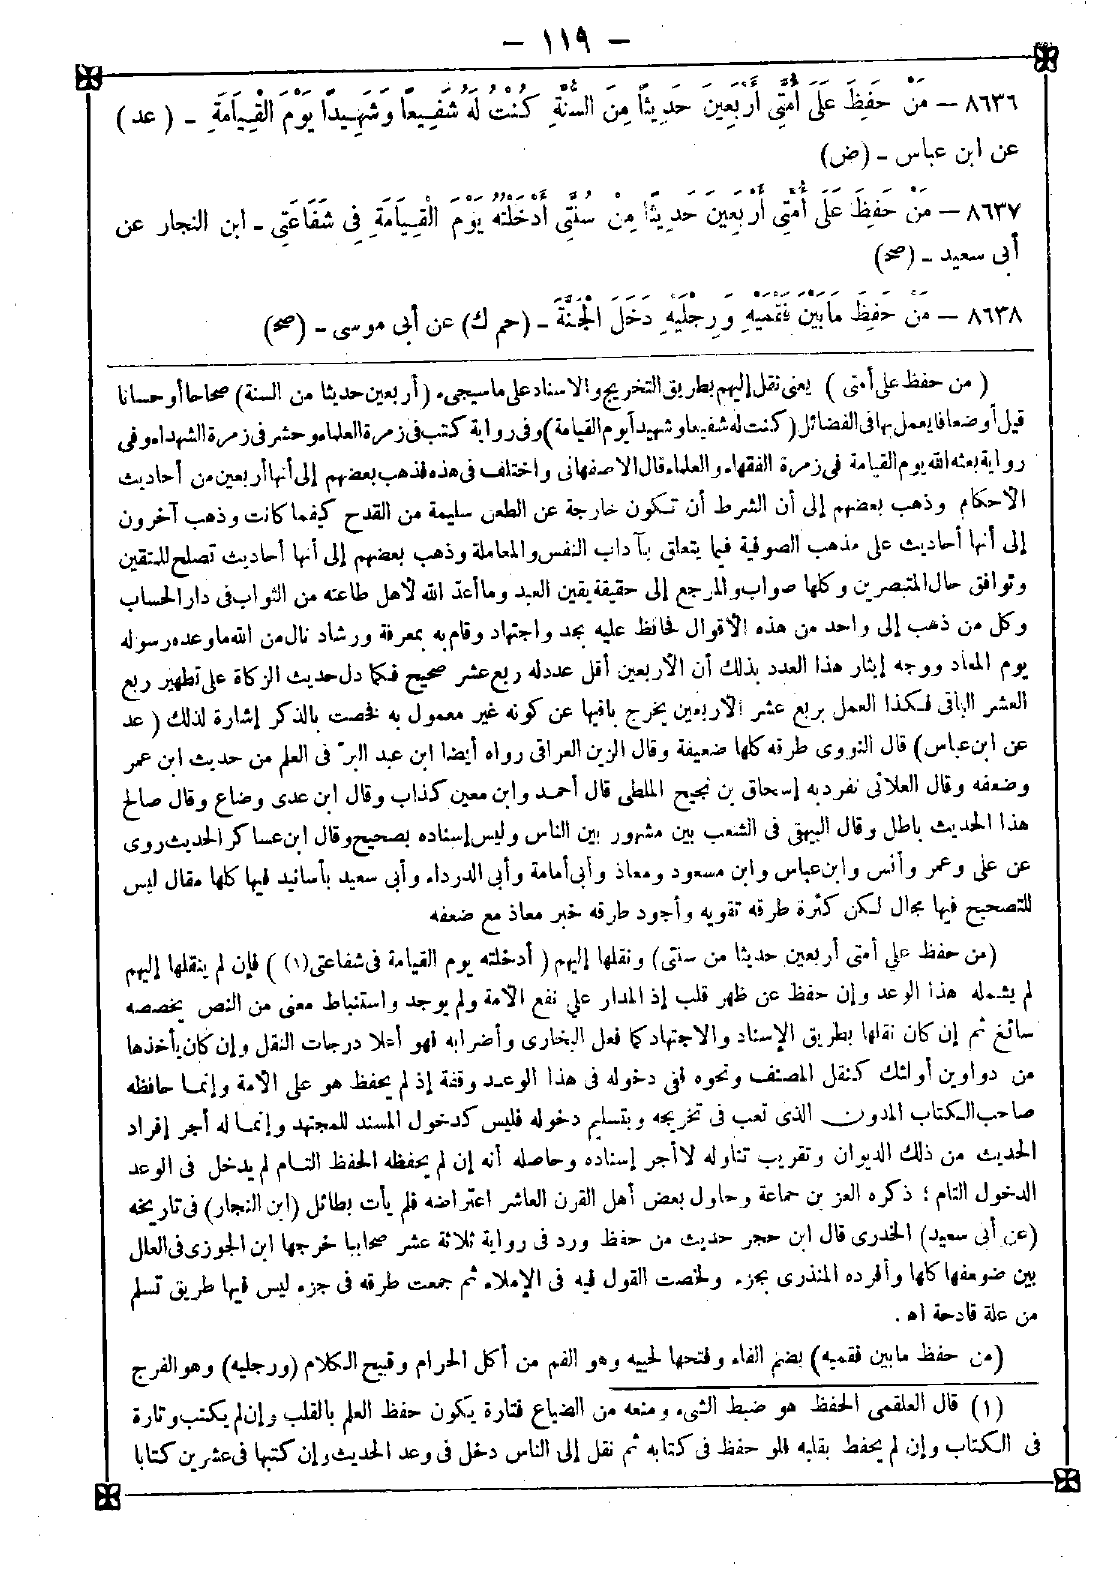 – ١١٩ –
٨٦٣٦ – مَنْ حَفِظَ عَلَى أُمَّتِى أَرْبَعِينَ حَدِيثًا مِنَ السُّنَّةِ كُنْتُ لَهُ شَفِيعًا وَشَهِيدًا يَوْمَ الْقِيَامَةِ – (عد)
عن ابن عباس – (ض)
٨٦٣٧ – مَنْ حَفِظَ عَلَى أُمَّتِى أَرْبَعِينَ حَدِيثًا مِنْ سُنَّتِى أَدْخَلْتُهُ يَوْمَ الْقِيَامَةِ فِى شَفَاعَتِى – ابن النجار عن
أبى سعيد – (صح)
٨٦٣٨ – مَنْ حَفِظَ مَابَيْنَ فُقْمَيْهِ وَرِجْلَيْهِ دَخَلَ الْجَنَّةَ – (حم ك) عن أبى موسى – (صح)
( من حفظ على أمتى ) يعنى نقل إليهم بطريق التخريج والاسناد على ماسيجىء (أربعين حديثا من السنة) صحاحا أو حسانا
قيل أو ضعافا يعمل بها فى الفضائل (كنت له شفيعا وشهيدا يوم القيامة) وفى رواية كتب فى زمرة العلماء وحشر فى زمرة الشهداء وفى
رواية بعثه الله يوم القيامة فى زمرة الفقهاء والعلماء قال الاصفهانى واختلف فى هذه فذهب بعضهم إلى أنها أربعين من أحاديث
الأحكام وذهب بعضهم إلى أن الشرط أن تكون خارجة عن الطعن سليمة من القدح كيفما كانت وذهب آخرون
إلى أنها أحاديث على مذهب الصوفية فيما يتعلق بآداب النفس والمعاملة وذهب بعضهم إلى أنها أحاديث تصلح للمتقين
وتوافق حال المتبصرين وكلها صواب والمرجع إلى حقيقة يقين العبد وما أعد الله لأهل طاعته من الثواب فى دار الحساب
وكل من ذهب إلى واحد من هذه الأقوال فحافظ عليه بجد واجتهاد وقام به بمعرفة ورشاد نال من الله ما وعده رسوله
يوم المعاد ووجه إيثار هذا العدد بذلك أن الأربعين أقل عدد له ربع عشر صحيح فكما دل حديث الزكاة على تطهير ربع
العشر الباقى فكذا العمل بربع عشر الأربعين يخرج باقيها عن كونه غير معمول به فخصت بالذكر إشارة لذلك ( عد
عن ابن عباس) قال النووى طرقه كلها ضعيفة وقال الزين العراقى رواه أيضا ابن عبد البرّ فى العلم من حديث ابن عمر
وضعفه وقال العلائى تفرد به إسحاق بن نجيح الملطى قال أحمد وابن معين كذاب وقال ابن عدى وضاع وقال صالح
هذا الحديث باطل وقال البيهقى فى الشعب بين مشهور بين الناس وليس إسناده بصحيح وقال ابن عساكر الحديث روى
عن على وعمر وأنس وابن عباس وابن مسعود ومعاذ وأبى أمامة وأبى الدرداء وأبى سعيد بأسانيد فيها كلها مقال ليس
للتصحيح فيها مجال لكن كثرة طرقه تقويه وأجود طرقه خبر معاذ مع ضعفه
(من حفظ على أمتى أربعين حديثا من سنتى) ونقلها إليهم ( أدخلته يوم القيامة فى شفاعتى(١) ) فإن لم ينقلها إليهم
لم يشمله هذا الوعد وإن حفظ عن ظهر قلب إذ المدار على نفع الأمة ولم يوجد واستنباط معنى من النص يخصصه
سائغ ثم إن كان نقلها بطريق الإسناد والاجتهاد كما فعل البخارى وأضرابه فهو أعلا درجات النقل وإن كان يأخذها
من دواوين أولئك كنقل المصنف ونحوه ففى دخوله فى هذا الوعد وقفة إذ لم يحفظ هو على الأمة وإنما حافظه
صاحب الكتاب المدون الذى تعب فى تخريجه وبتسليم دخوله فليس كدخول المسند للمجتهد وإنما له أجر إفراد
الحديث من ذلك الديوان وتقريب تناوله لا أجر إسناده وحاصله أنه إن لم يحفظه الحفظ التام لم يدخل فى الوعد
الدخول التام ؛ ذكره العز بن جماعة وحاول بعض أهل القرن العاشر اعتراضه فلم يأت بطائل (ابن النجار) فى تاريخه
(عن أبى سعيد) الخدرى قال ابن حجر حديث من حفظ ورد فى رواية ثلاثة عشر صحابيا خرجها ابن الجوزى فى العلل
بين ضعفها كلها وأفرده المنذرى بجزء ولخصت القول فيه فى الإملاء ثم جمعت طرقه فى جزء ليس فيها طريق تسلم
من علة قادحة اه .
(من حفظ مابين فقميه) بضم الفاء وفتحها لحييه وهو الفم من أكل الحرام وقبيح الكلام (ورجليه) وهو الفرج
(١) قال العلقمى الحفظ هو ضبط الشىء ومنعه من الضياع فتارة يكون حفظ العلم بالقلب وإن لم يكتب وتارة
فى الكتاب وإن لم يحفظ بقلبه فلو حفظ فى كتابه ثم نقل إلى الناس دخل فى وعد الحديث وإن كتبها فى عشرين كتابا